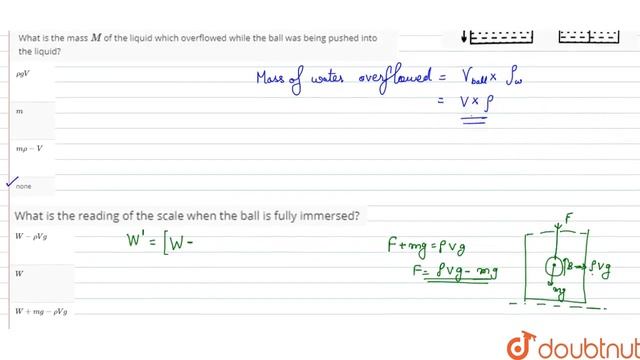 What is the mass M of the liquid which overflowed while the ball was being pushed into
the liquid?
ρgV
m
mρ − V
none
Mass of water overflowed = V ball × ρw
= V × ρ
What is the reading of the scale when the ball is fully immersed?
W − ρVg
W
W + mg − ρVg
W' = [W -
F + mg = ρVg
F = ρVg - mg
F
B → ρVg
mg
doubtnut